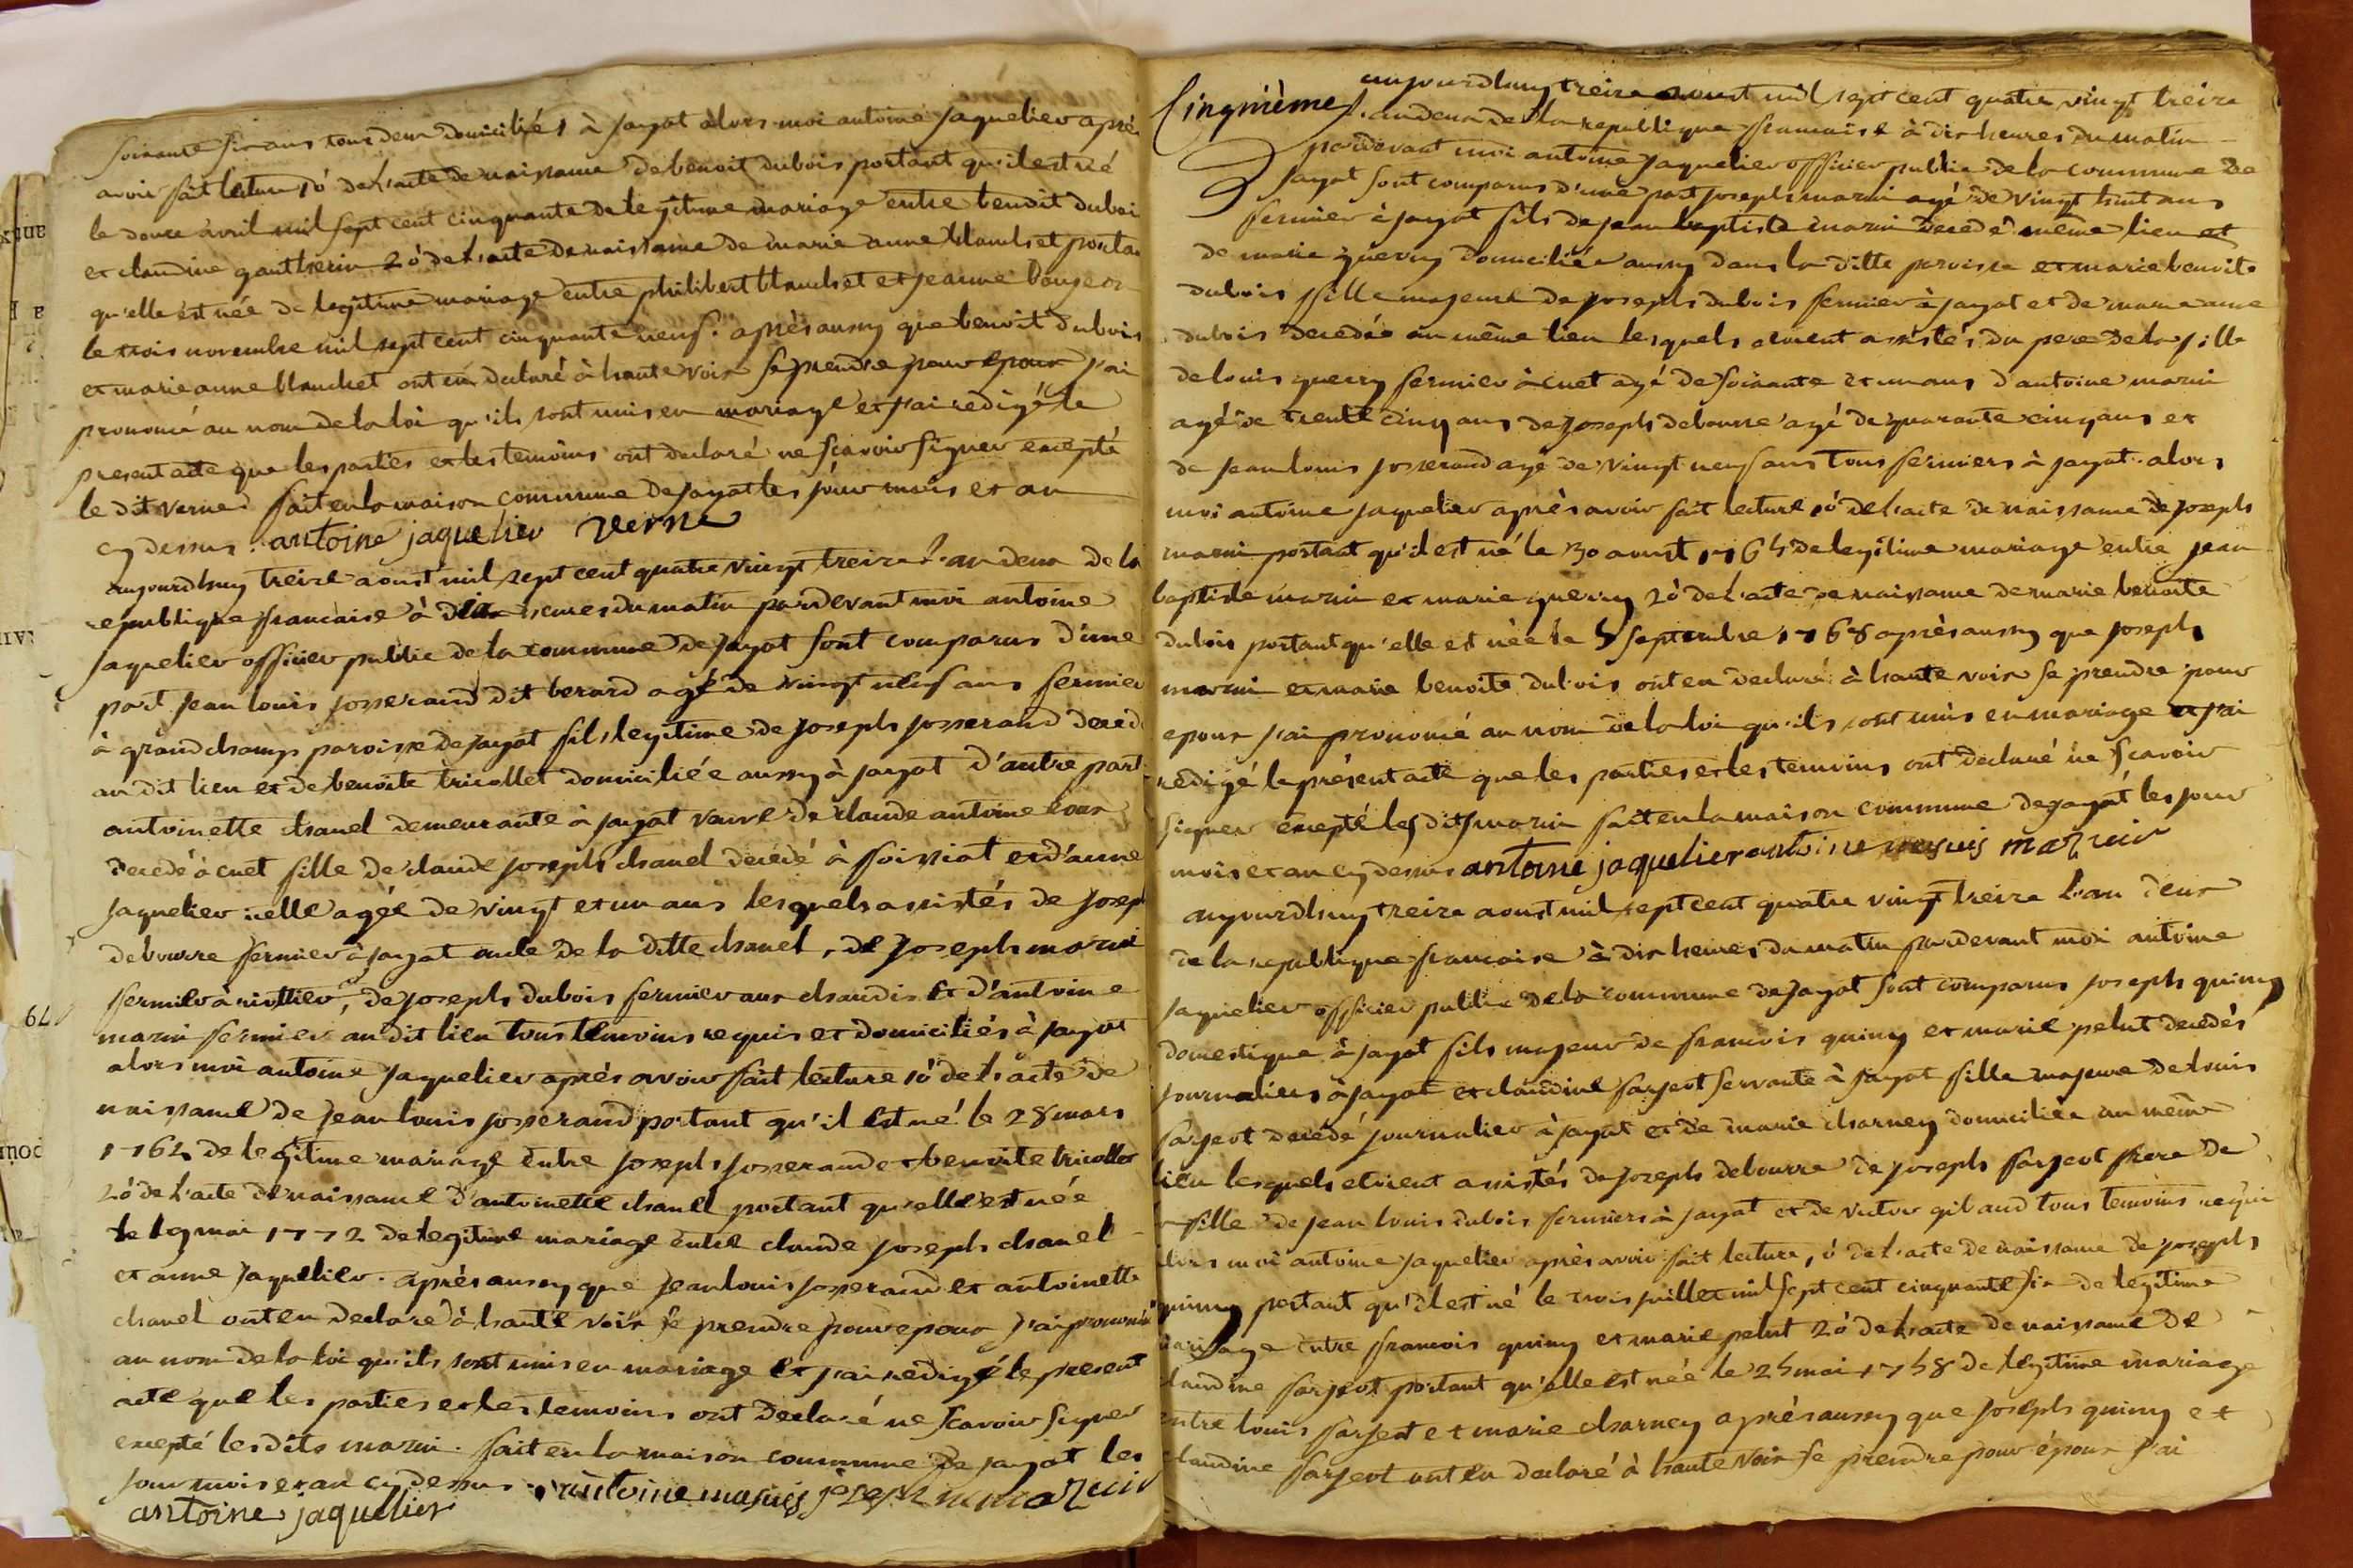 soixante six ans tous deux domiciliés à jayat alors moi antoine jaquelier aprè
avoir fait lecture 1o de l'acte de naissance de benoit dubois portant qu'il est né
le douze avril mil sept cent cinquante de legitime mariage entre benoit duboi
et claudine gautherin 2o de l'acte de naissance de marie anne blanchet porta
qu'elle est née de legitime mariage entre philibert blanchet et jeanne
le trois novembre mil sept cent cinquante neuf. après aussy que benoit dubois
et marie anne blanchet ont eu declaré à haute voix se prendre pour epoux j'ai
prononcé au nom de la loi qu'ils sont unis en mariage et j'ai redigé le
present acte que les parties et les temoins ont declaré ne scavoir signer excepté
le dit verne. fait en la maison commune de jayat les jour mois et an
cy dessus. antoine jaquelier verne
aujourdhuy treize aoust mil sept cent quatre vingt treize l'an deux de la
republique francaise à dix heures du matin pardevant moi antoine
jaquelier officier public de la commune de jayat sont comparus d'une
part jean louis josserand dit berard agé de vingt neuf ans fermier
à grand champ paroisse de jayat fils legitime de joseph josserand deced
au dit lieu et de benoite tricollet domiciliée aussy à jayat d'autre part
antoinette chanel demeurante à jayat veuve de claude antoine
decedé à cuet fille de claude joseph chanel decedé à foissiat et d'anne
jaquelier icelle agée de vingt et un ans lesquels assistés de josep
debourre fermier à jayat oncle de la ditte chanel, de joseph mazui
fermier à, de joseph dubois fermier aux chaudis et d'antoine
mazui fermier au dit lieu tous temoins requis et domiciliés à jayat
alors moi antoine jaquelier après avoir fait lecture 1o de l'acte de
naissance de jean louis josserand portant qu'il est né le 28 mars
1764 de legitime mariage entre joseph josserand et benoite tricollet
2o de l'acte de naissance d'antoinette chanel portant qu'elle est née
le 19 mai 1772 de legitime mariage entre claude joseph chanel
et anne jaquelier. après aussy que jean louis josserand et antoinette
chanel ont eu declaré à haute voix se prendre pour epoux j'ai prononcé
au nom de la loi qu'ils sont unis en mariage et j'ai redigé le present
acte que les parties et les temoins ont declaré ne scavoir signer
excepté les dits mazui. fait en la maison commune de jayat les
jour mois et an cy dessus. antoine masuis joseph mazuir
antoine jaquelier
Cinquième f.
aujourdhuy treize aoust mil sept cent quatre vingt treize
l'an deux de la republique francaise à dix heures du matin
pardevant moi antoine jaquelier officier public de la commune de
jayat sont comparus d'une part joseph mazui agé de vingt huit ans
fermier à jayat fils de jean baptiste mazui decedé même lieu et
de marie guerry domiciliée aussy dans la ditte paroisse et marie benoite
dubois fille majeure de joseph dubois fermier à jayat et de marie anne
dubois decedée au même lieu lesquels etoient assistés du pere de la fille
de louis guerry fermier à cuet agé de soixante et un ans d'antoine mazui
agé de trente cinq ans de joseph debourre agé de quarante cinq ans et
de jean louis josserand agé de vingt neuf ans tous fermiers à jayat. alors
moi antoine jaquelier après avoir fait lecture 1o de l'acte de naissance de joseph
mazui portant qu'il est né le 30 aoust 1765 de legitime mariage entre jean
baptiste mazui et marie guerry 2o de l'acte de naissance de marie benoite
dubois portant qu'elle est née le 5 septembre 1768 après aussy que joseph
mazui et marie benoite dubois ont eu declaré à haute voix se prendre pour
epoux j'ai prononcé au nom de la loi qu'ils sont unis en mariage et j'ai
redigé le présent acte que les parties et les temoins ont declaré ne scavoir
signer excepté les dits mazui fait en la maison commune de jayat les jour
mois et an cy dessus antoine jaquelier antoine masuis mazuir
aujourdhuy treize aoust mil sept cent quatre vingt treize l'an deux
de la republique francaise à dix heures du matin pardevant moi antoine
jaquelier officier public de la commune de jayat sont comparus joseph quiny
domestique à jayat fils majeur de francois quiny et marie pelut decedés
journaliers à jayat et claudine farjeot servante à jayat fille majeure de louis
farjeot decedé journalier à jayat et de marie charney domiciliée au même
lieu lesquels etoient assistés de joseph debourre de joseph farjeot frere de
fille de jean louis dubois fermiers à jayat et de victor gilaud tous temoins requi
alors moi antoine jaquelier après avoir fait lecture 1o de l'acte de naissance de joseph
quiny portant qu'il est né le trois juillet mil sept cent cinquante six de legitime
mariage entre francois quiny et marie pelut 2o de l'acte de naissance de
claudine farjeot portant qu'elle est née le 25 mai 1758 de legitime mariage
entre louis farjeot et marie charney après aussy que joseph quiny et
claudine farjeot ont eu declaré à haute voix se prendre pour époux j'ai